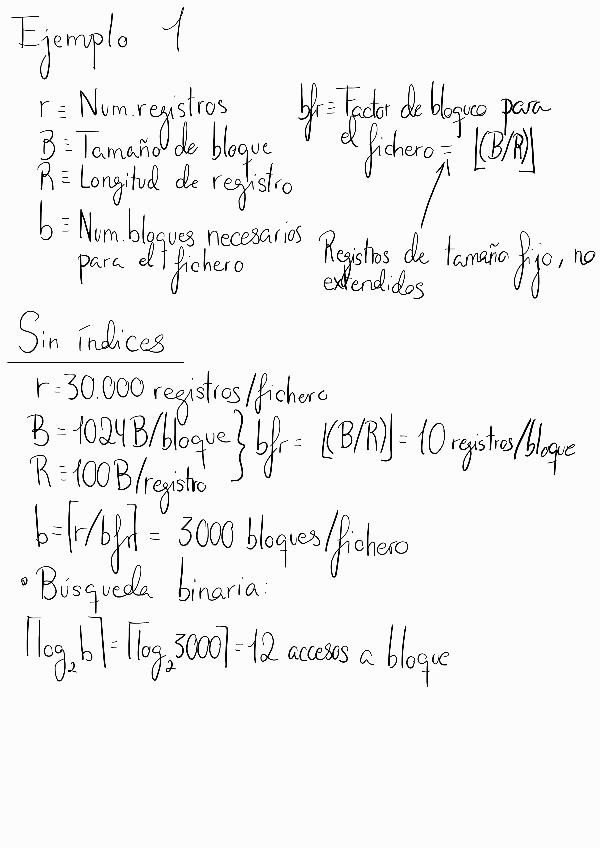 Ejemplo 1
r ≡ Num. registros
B ≡ Tamaño de bloque
R ≡ Longitud de registro
b ≡ Num. bloques necesarios
para el fichero
bfr ≡ Factor de bloqueo para
el fichero = ⌊(B/R)⌋
Registros de tamaño fijo, no
extendidos
Sin índices
r = 30.000 registros/fichero
B = 1024 B/bloque
R = 100 B/registro
} bfr = ⌊(B/R)⌋ = 10 registros/bloque
b = ⌈r/bfr⌉ = 3000 bloques/fichero
• Búsqueda binaria:
⌈log₂b⌉ = ⌈log₂3000⌉ = 12 accesos a bloque